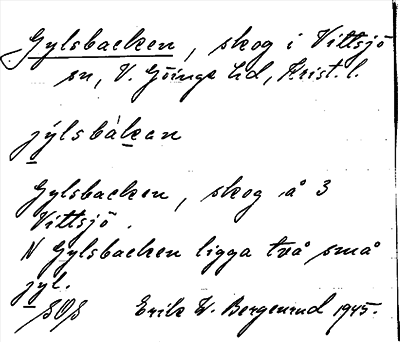 Gylsbacken, skog i Vittsjö
sn, V. Göinge hd, Krist. l.
jýlsbàkan
Gylsbacken, skog å 3
Vittsjö.
N Gylsbacken ligga två små
jyl.
Erik W. Bergenrud 1945.